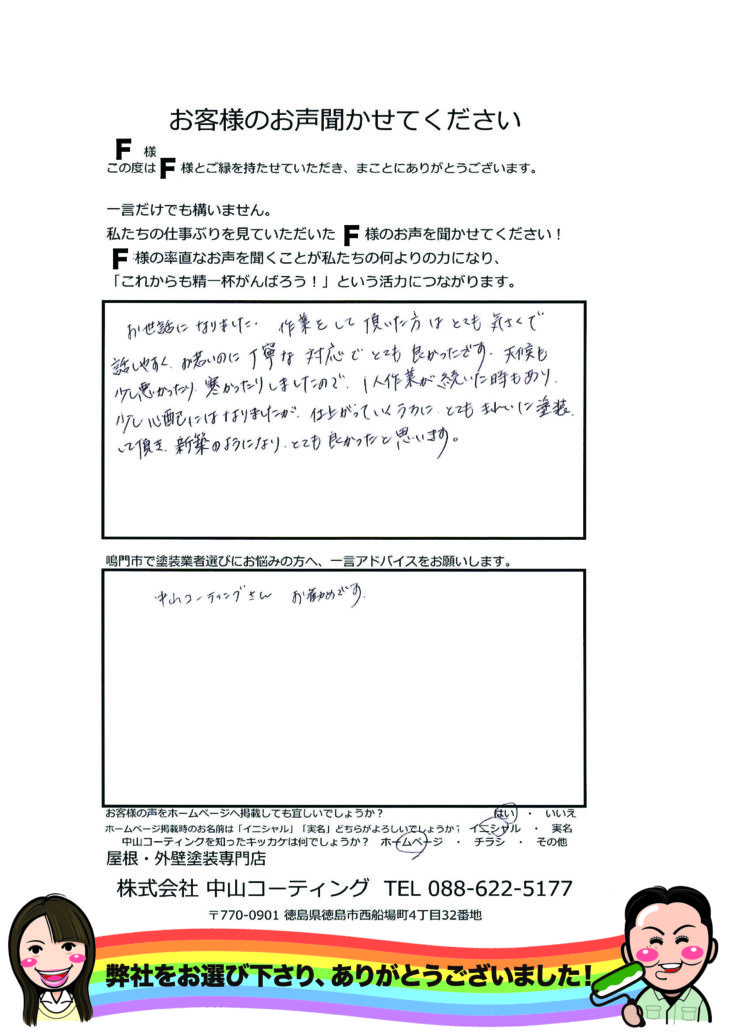 お客様のお声聞かせてください
F 様
この度は F 様とご縁を持たせていただき、まことにありがとうございます。
一言だけでも構いません。
私たちの仕事ぶりを見ていただいた F 様のお声を聞かせてください！
F 様の率直なお声を聞くことが私たちの何よりの力になり、
「これからも精一杯がんばろう！」という活力につながります。
お世話になりました. 作業をして頂いた方はとても気さくで
話しやすく、お若いのに丁寧な対応でとても良かったです. 天候も
少し悪かったり、寒かったりしましたので、1人作業が続いた時もあり、
少し心配にはなりましたが、仕上がっていくうちに、とてもきれいに塗装
して頂き、新築のようになり、とても良かったと思います。
鳴門市で塗装業者選びにお悩みの方へ、一言アドバイスをお願いします。
中山コーティングさん お勧めです.
お客様の声をホームページへ掲載しても宜しいでしょうか？ はい ・ いいえ
ホームページ掲載時のお名前は「イニシャル」「実名」どちらがよろしいでしょうか？ イニシャル ・ 実名
中山コーティングを知ったキッカケは何でしょうか？ ホームページ ・ チラシ ・ その他
屋根・外壁塗装専門店
株式会社 中山コーティング TEL 088-622-5177
〒770-0901 徳島県徳島市西船場町4丁目32番地
弊社をお選び下さり、ありがとうございました！